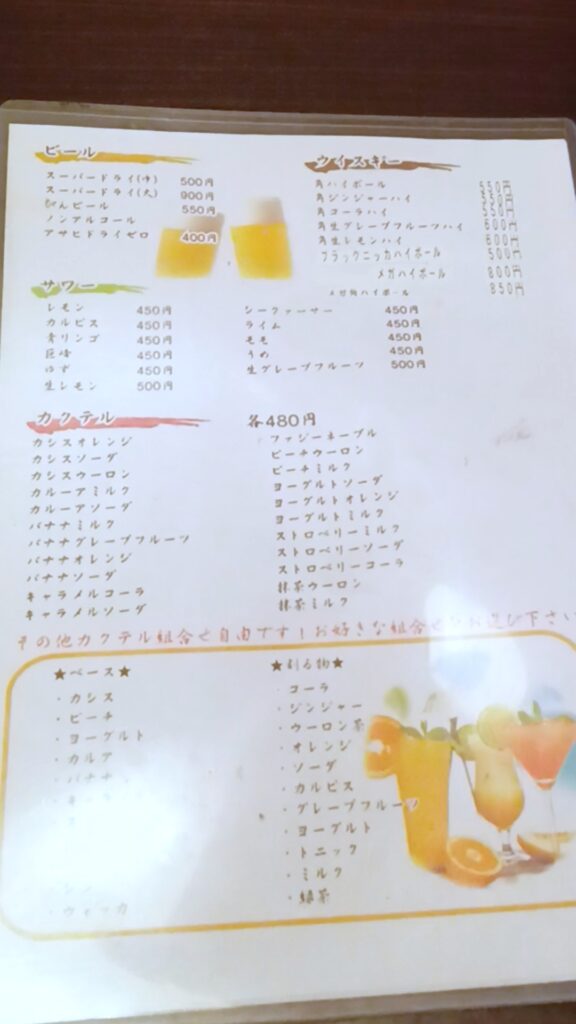 ビール
スーパードライ(中) 500円
スーパードライ(大) 900円
びんビール 550円
ノンアルコール
アサヒドライゼロ 400円
ウイスキー
角ハイボール 550円
角ジンジャーハイ 550円
角コーラハイ 550円
角生グレープフルーツハイ 600円
角生レモンハイ 600円
ブラックニッカハイボール 500円
メガハイボール 800円
メガ角ハイボール 850円
サワー
レモン 450円
カルピス 450円
青リンゴ 450円
巨峰 450円
ゆず 450円
生レモン 500円
シークァーサー 450円
ライム 450円
モモ 450円
うめ 450円
生グレープフルーツ 500円
カクテル 各480円
カシスオレンジ
カシスソーダ
カシスウーロン
カルーアミルク
カルーアソーダ
バナナミルク
バナナグレープフルーツ
バナナオレンジ
バナナソーダ
キャラメルコーラ
キャラメルソーダ
ファジーネーブル
ピーチウーロン
ピーチミルク
ヨーグルトソーダ
ヨーグルトオレンジ
ヨーグルトミルク
ストロベリーミルク
ストロベリーソーダ
ストロベリーコーラ
抹茶ウーロン
抹茶ミルク
その他カクテル組合せ自由です！お好きな組合せをお選び下さい
★ベース★
・カシス
・ピーチ
・ヨーグルト
・カルア
・バナナ
・ウォッカ
★割る物★
・コーラ
・ジンジャー
・ウーロン茶
・オレンジ
・ソーダ
・カルピス
・グレープフルーツ
・ヨーグルト
・トニック
・ミルク
・緑茶